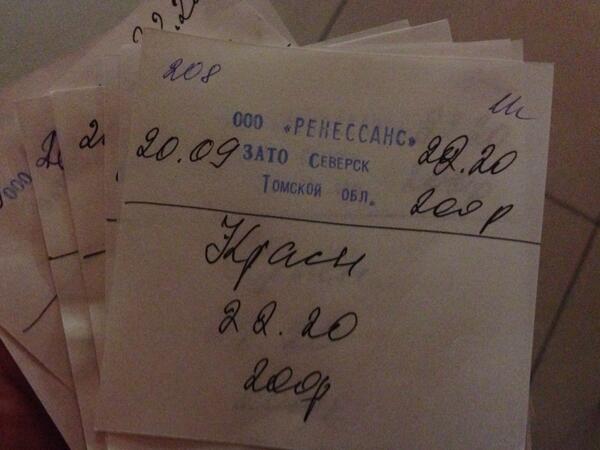 208
ООО «РЕНЕССАНС»
20.09 ЗАТО СЕВЕРСК 22.20
ТОМСКОЙ ОБЛ. 200р
Красн
22.20
200р
ООО